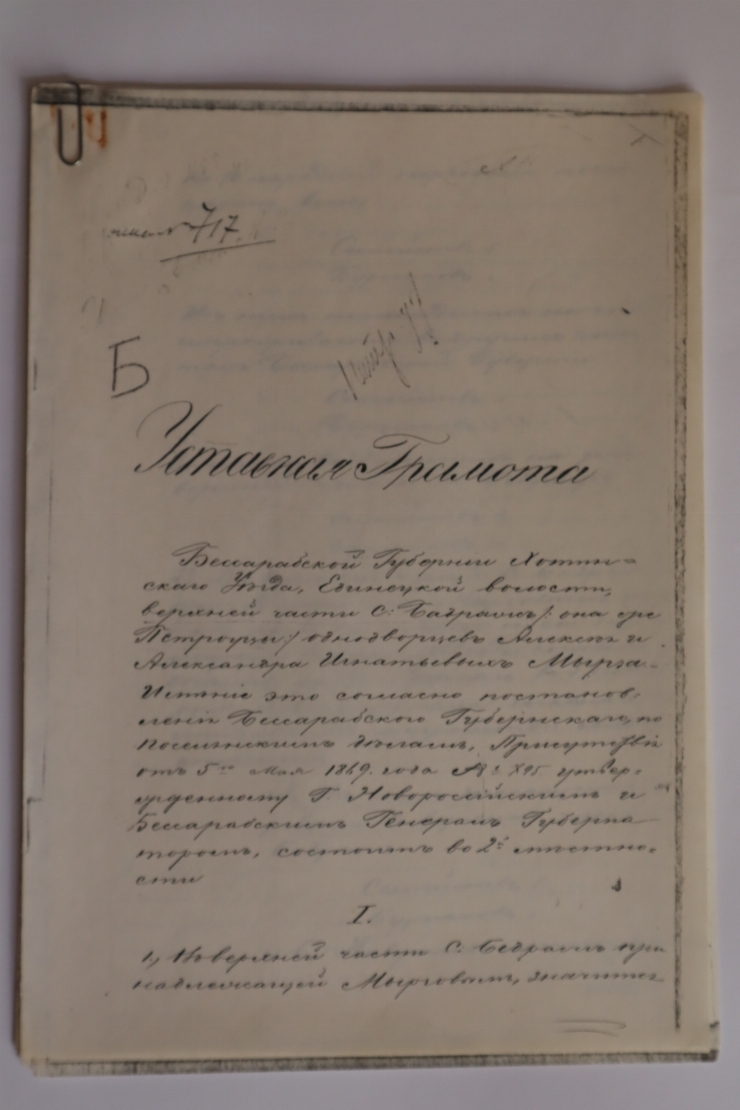 717
Б
Уставная Грамота
Бессарабской Губерніи Хотин=
скаго Уѣзда, Единецкой волости,
верхней части С. Бадражъ /: она же
Петроуцы / однодворцевъ Алексѣя и
Александра Игнатьевыхъ Мырза.
Имѣніе это согласно постанов-
ленію Бессарабскаго Губернскаго, по
Поселянскимъ дѣламъ, Присутствія
отъ 5го Мая 1869 года № утвер-
жденному Г. Новороссійскимъ и
Бессарабскимъ Генералъ Губерна-
торомъ, состоитъ во 2й мѣстно-
сти
I.
1, Въ верхней части С. Бадражъ при
надлежащей Мырзовымъ, значится